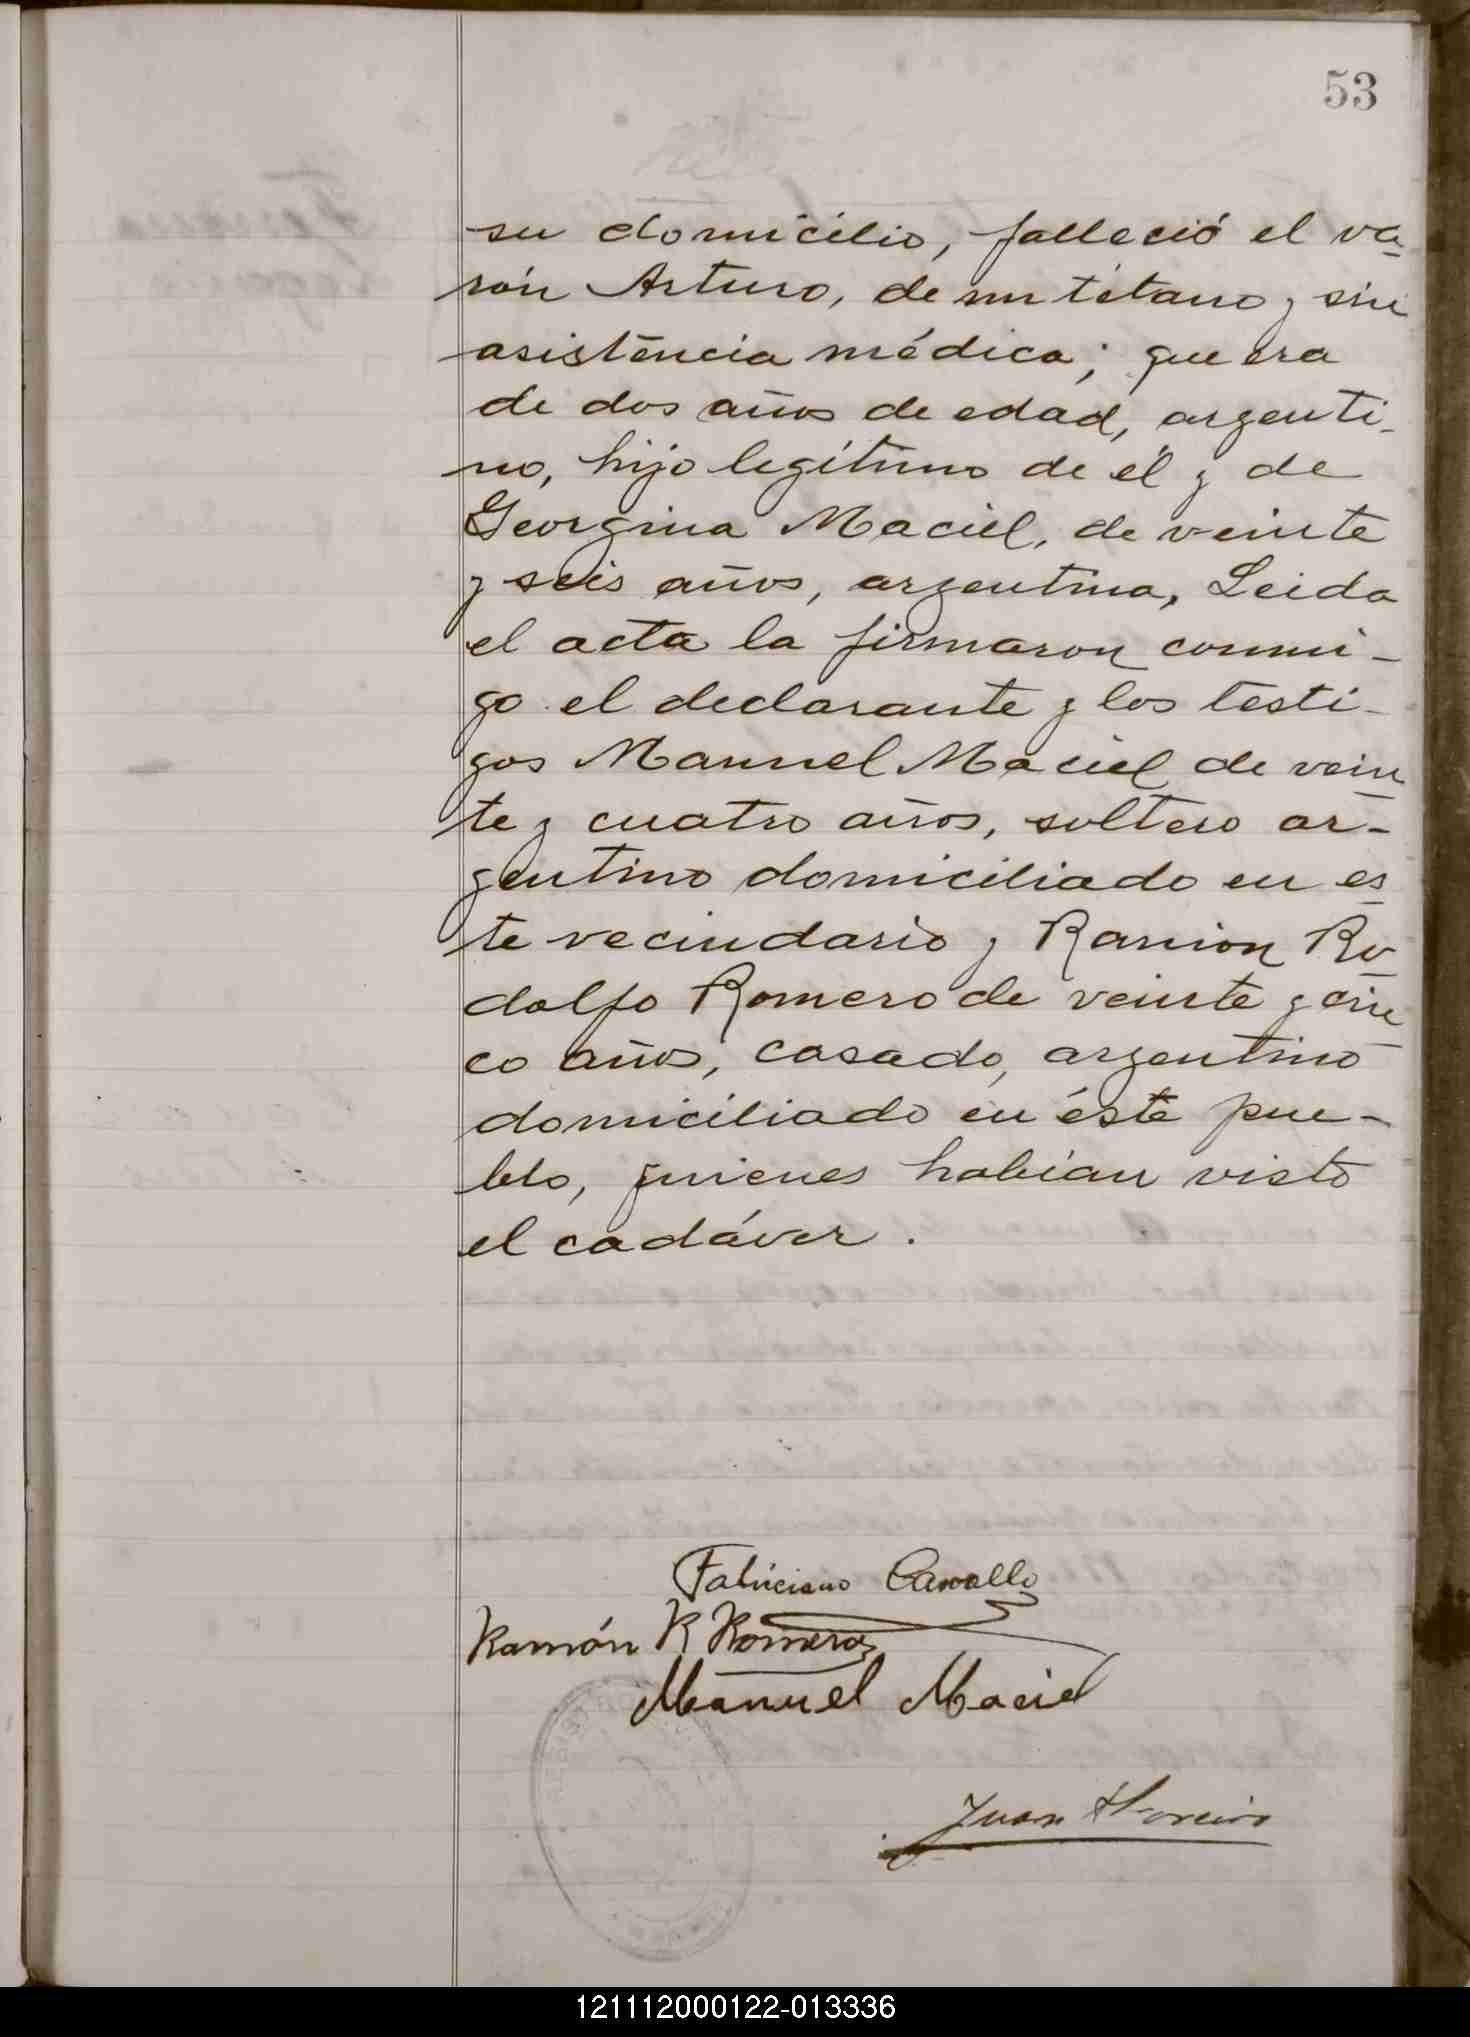 53
su domicilio, falleció el va-
rón Arturo, de un tétano y sin
asistencia médica; que era
de dos años de edad, argenti-
no, hijo legítimo de él y de
Georgina Maciel, de veinte
y seis años, argentina. Leida
el acta la firmaron conmi-
go el declarante y los testi-
gos Manuel Maciel de vein-
te y cuatro años, soltero ar-
gentino domiciliado en es-
te vecindario y Ramon Ro-
dolfo Romero de veinte y cin-
co años, casado, argentino
domiciliado en éste pue-
blo, quienes habían visto
el cadáver.
Ramón R Romero
Manuel Maciel
Juan
121112000122-013336